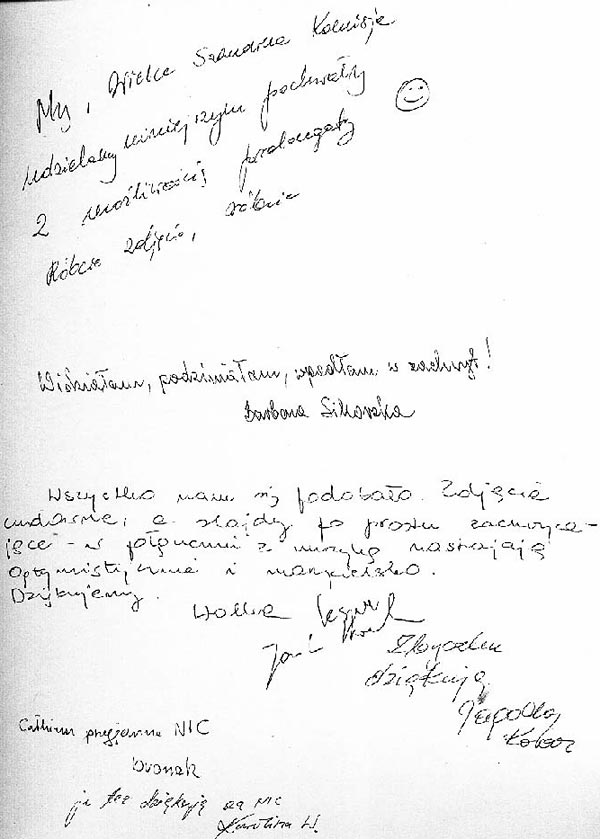 My, Wielka Szanowna Komisja
udzielamy niniejszym pochwały
z możliwością prolongaty
Róbcie zdjęcia, róbcie
Widziałam, podziwiałam, wpadłam w zachwyt!
Barbara Sikorska
Wszystko nam się podobało. Zdjęcia
cudowne, a slajdy po prostu zachwyca-
jące - w połączeniu z muzyką nastrajają
optymistycznie i marzycielsko.
Dziękujemy.
Zbyszku
dziękuję
Całkiem przyjemne NIC
ja też dziękuję za NIC
Karolina W.